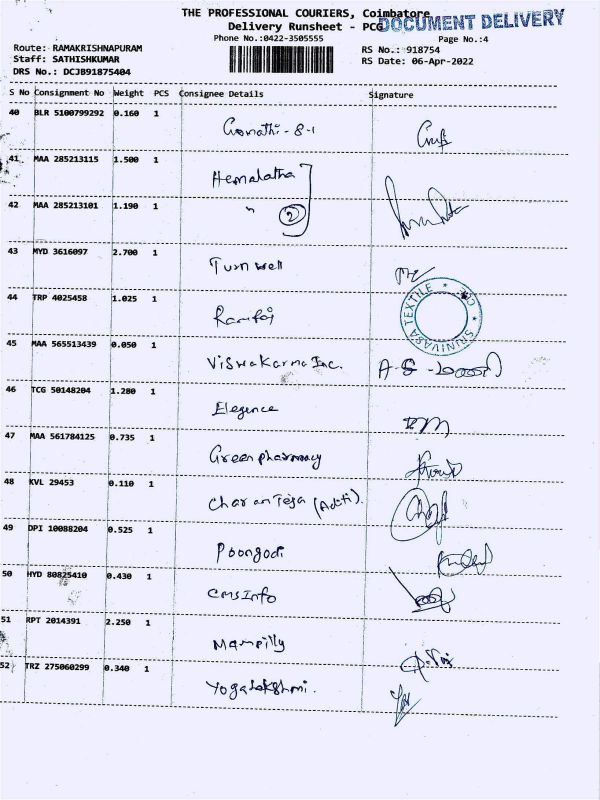 THE PROFESSIONAL COURIERS, Coimbatore
DOCUMENT DELIVERY
Delivery Runsheet - PCG
Phone No.:0422-3505555
Page No.:4
Route: RAMAKRISHNAPURAM
RS No.: 918754
Staff: SATHISHKUMAR
RS Date: 06-Apr-2022
DRS No.: DCJB91875404
S No Consignment No Weight PCS Consignee Details Signature
40 BLR 5100799292 0.160 1
41 MAA 285213115 1.500 1 Hemalatha
42 MAA 285213101 1.190 1 " 2
43 MYD 3616097 2.700 1 Turnwell
44 TRP 4025458 1.025 1 Ramraj
SRINIVASA TEXTILE * CBE *
45 MAA 565513439 0.050 1 Viswakarma Inc.
46 TCG 50148204 1.280 1 Elegence
47 MAA 561784125 0.735 1 Green pharmacy
48 KVL 29453 0.110 1 Charan Teja (Aditi).
49 DPI 10088204 0.525 1 Poongodi
50 HYD 80825410 0.430 1 CMS Info
51 RPT 2014391 2.250 1 Mampilly
52 TRZ 275060299 0.340 1 Yogalakshmi.